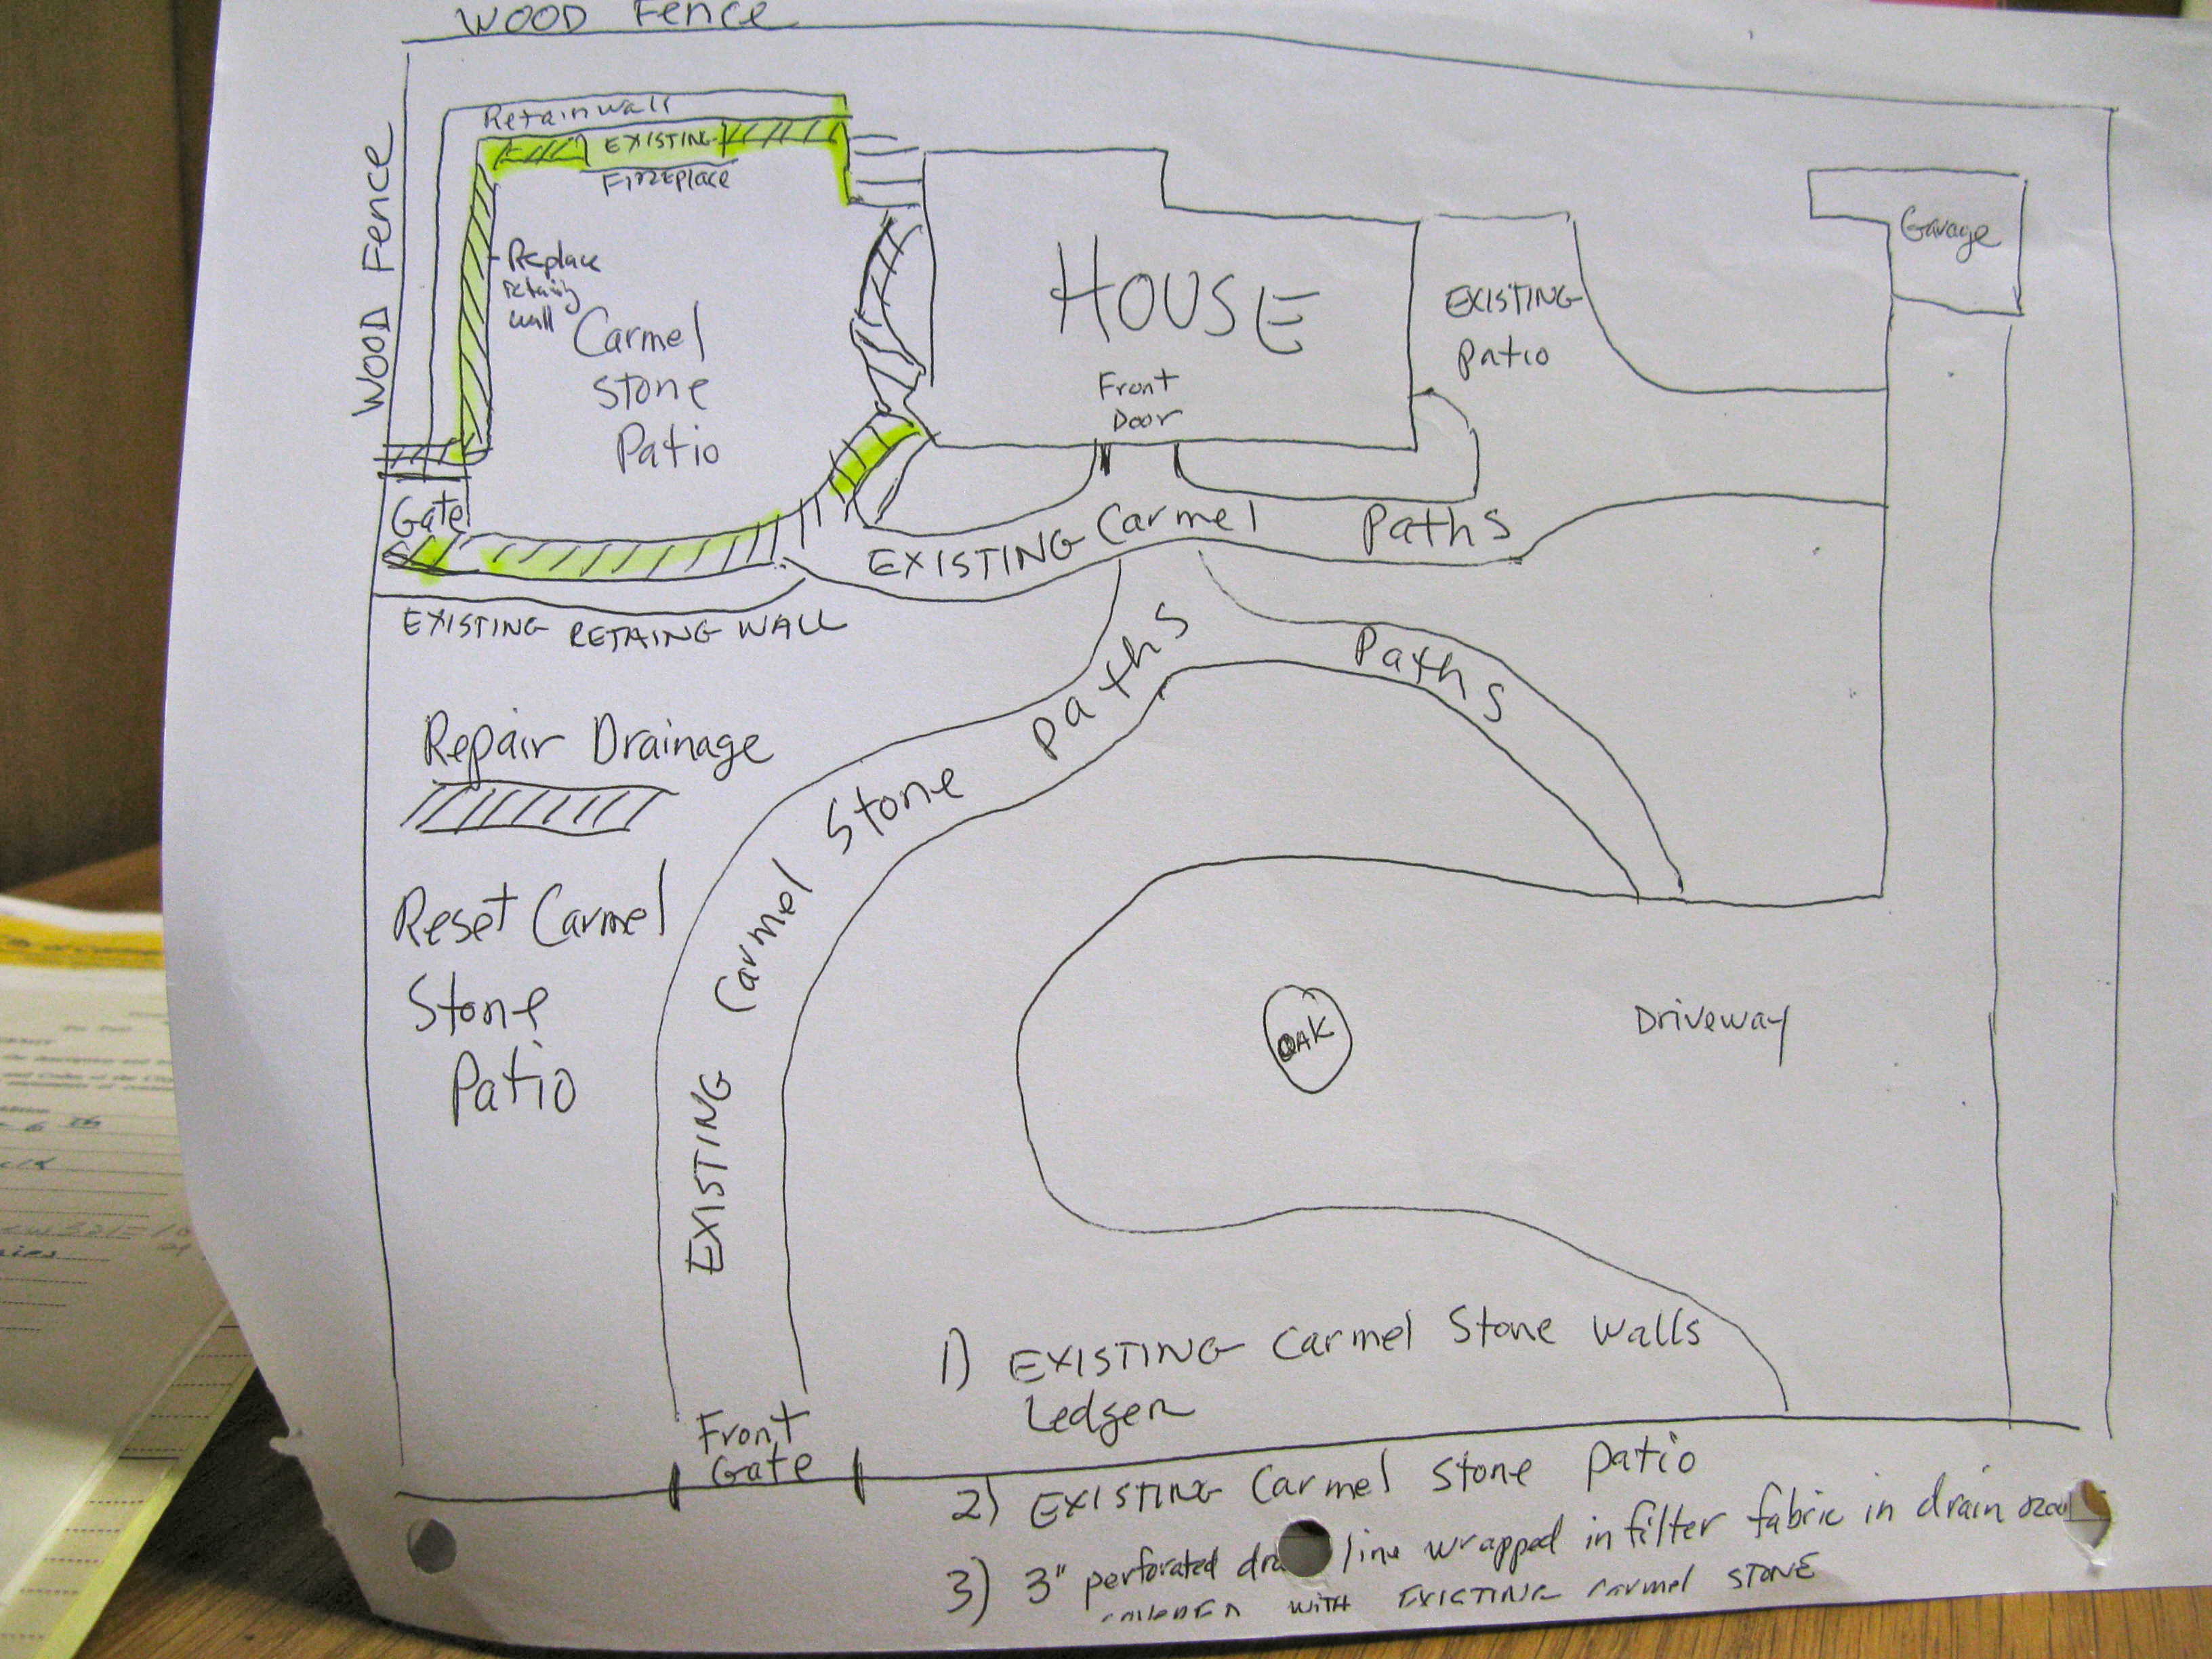 WOOD Fence
WOOD Fence
Retainwall
EXISTING
FIREplace
Replace
retaing
wall
Carmel
Stone
Patio
Gate
HOUSE
Front
Door
EXISTING
Patio
Garage
EXISTING Carmel Paths
EXISTING RETAING WALL
Paths
EXISTING Carmel Stone Paths
Repair Drainage
Reset Carmel
Stone
Patio
OAK
Driveway
Front
Gate
1) EXISTING Carmel Stone Walls
Ledger
2) EXISTING Carmel Stone Patio
3) 3" perforated line wrapped in filter fabric in drain
WITH EXISTING Carmel STONE